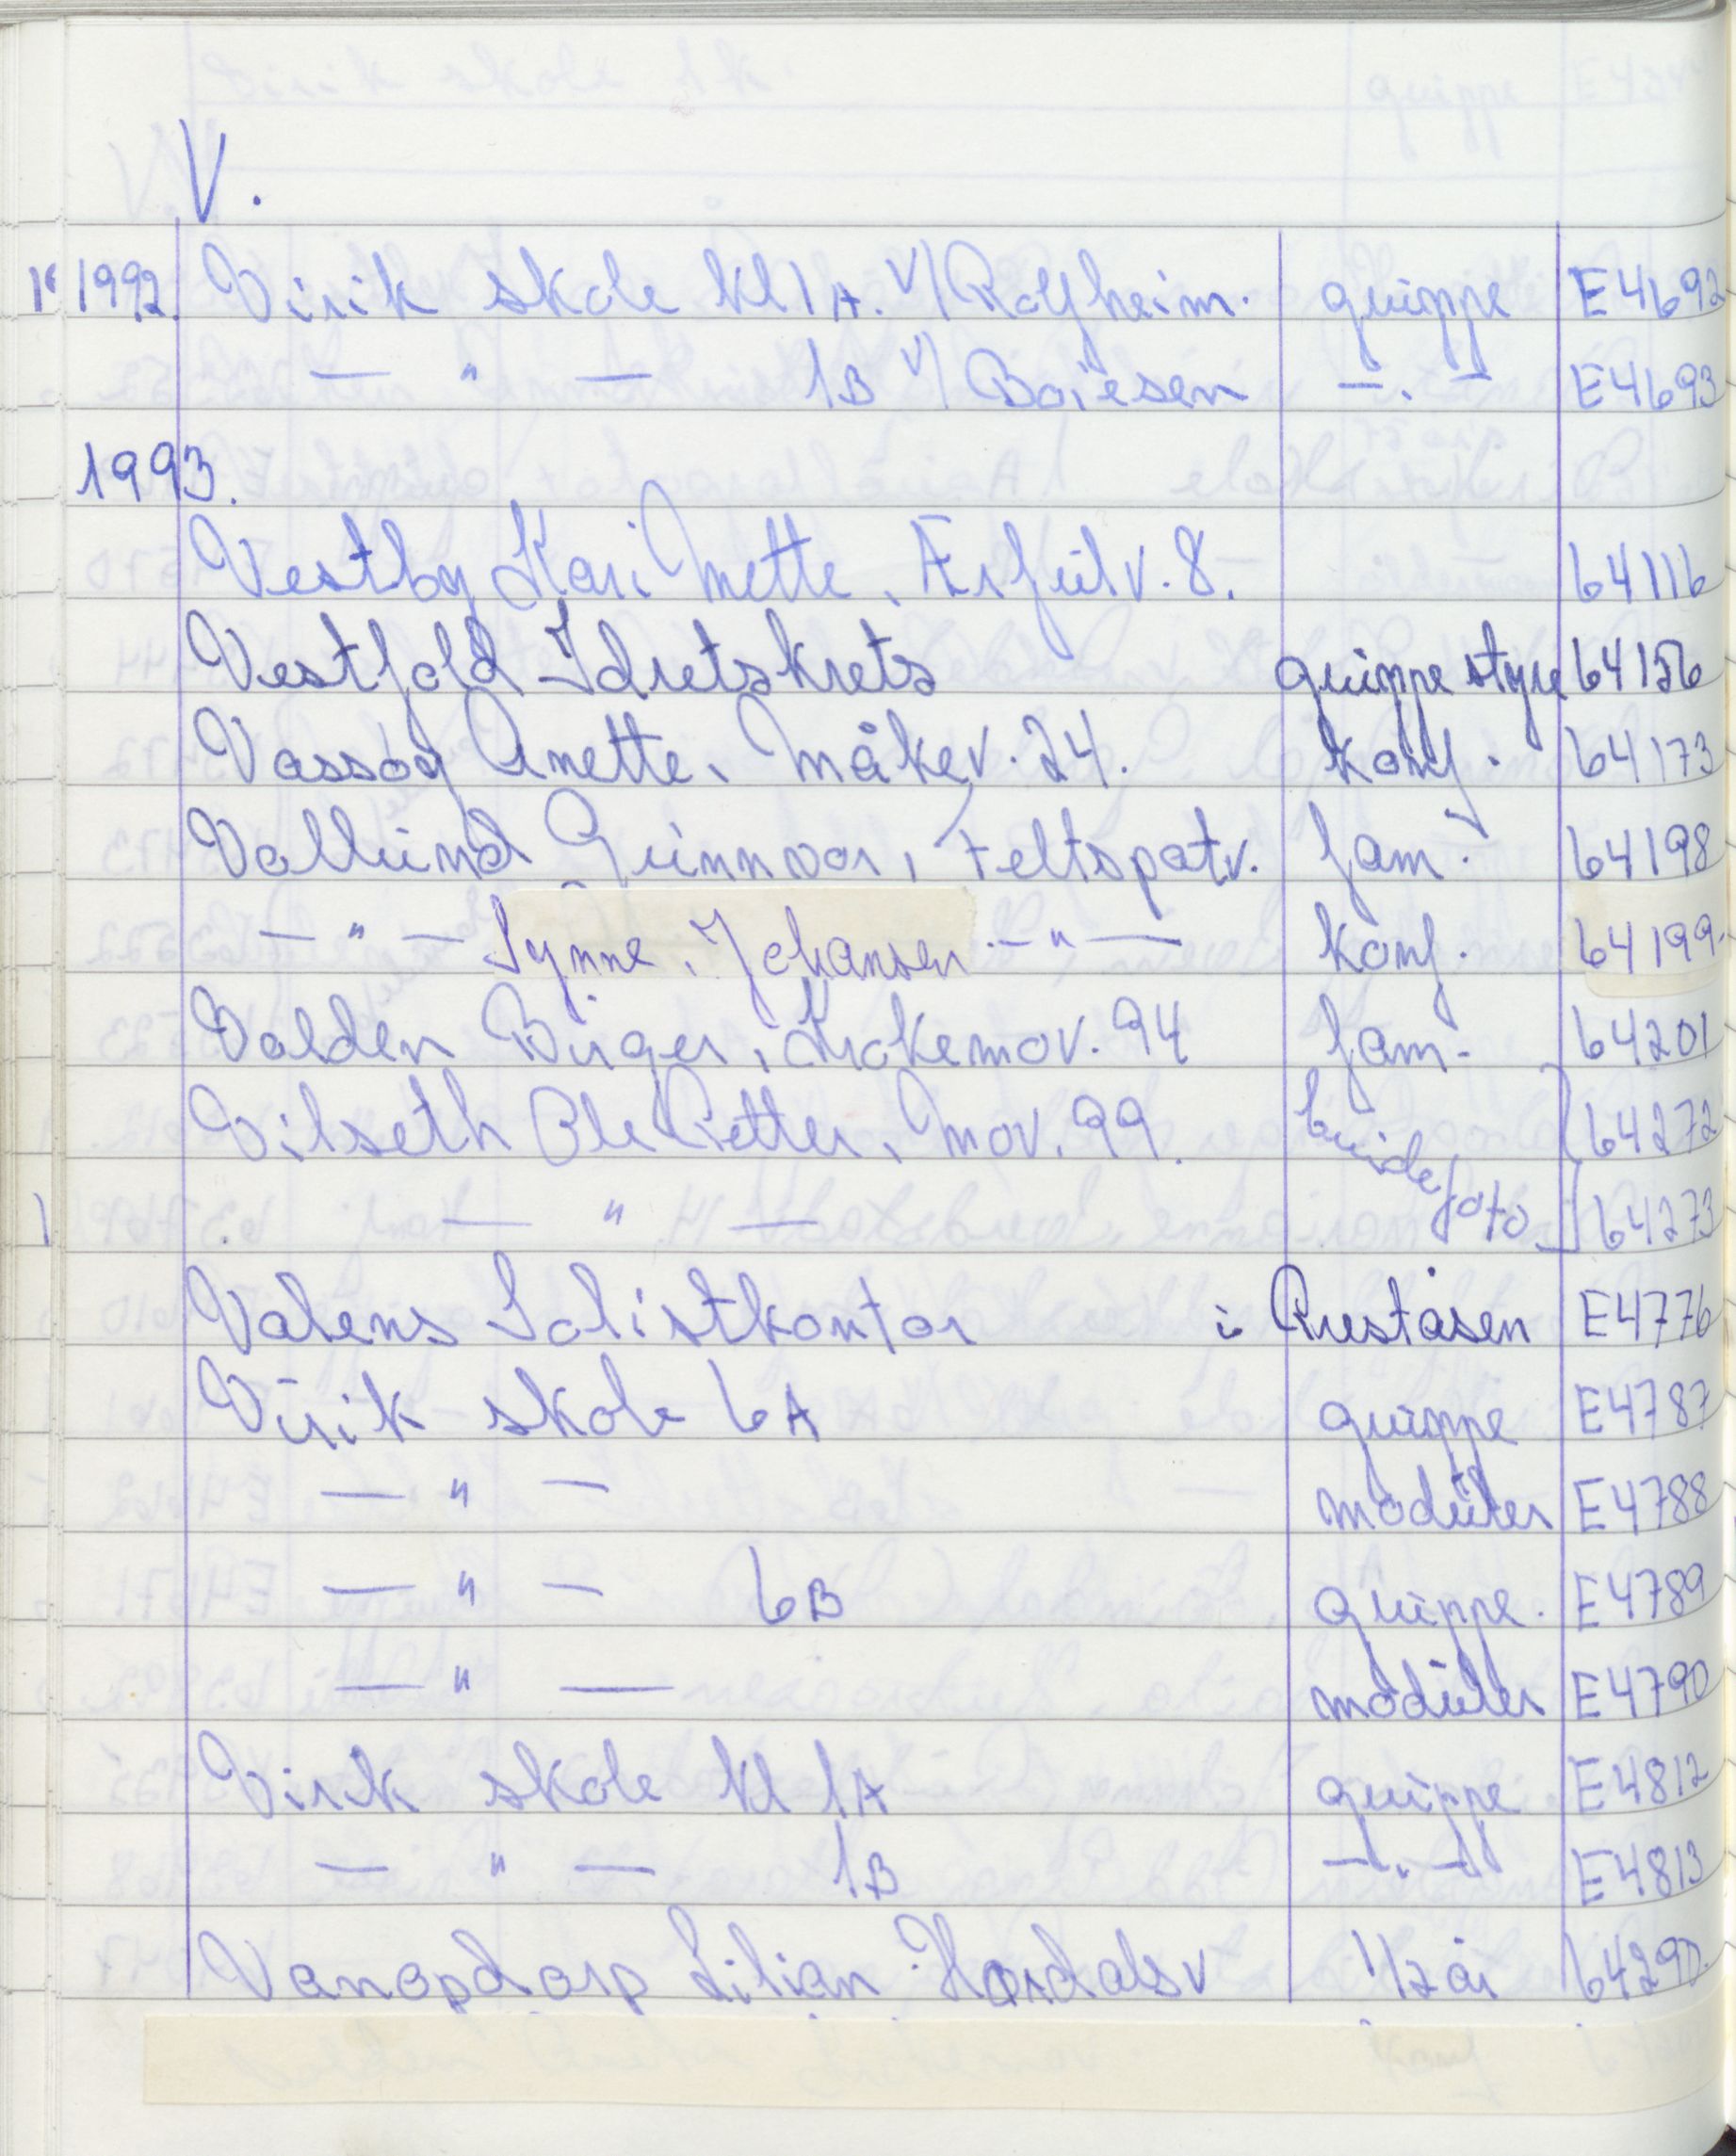 V.
1992. Virik skole kl 1A. v/ Rolfheim. gruppe E4692
— " — 1B v/ Boiesen —.— E4693
1993.
Vestby Kari Mette, Ærfulv. 8. 64116
Vestfold Idretskrets gruppe styre 64156
Vassdg Anette, Måkev. 24. konf. 64173
Vallund Gunnvor, Feltspatv. fam. 64198
— " — Synne. Johansen. — " — konf. 64199.
Valden Birger, Krokemov. 94 fam. 64201
Vilseth Ole Petter, Mov. 99. brudefoto 64272
— " — 64273
Valens Solistkontor i Preståsen E4776
Virik skole 6A gruppe E4787
— " — moduler E4788
— " — 6B gruppe. E4789
— " — moduler E4790
Virik skole kl 1A gruppe. E4812
— " — 1B —.— E4813
Vanopdorp Lilian Hordalsv 1/2 år 64290.